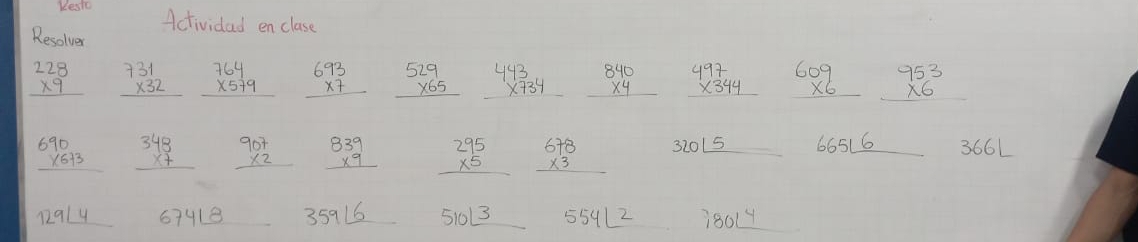 Resto
Actividad en clase
Resolver
228 731 764 693 529 443 840 497 609 953
x9 x32 x579 x7 x65 x734 x4 x344 x6 x6
690 348 907 839 295 678 320⌊5 665⌊6 366⌊
x673 x7 x2 x9 x5 x3
129⌊4 674⌊8 359⌊6 510⌊3 554⌊2 780⌊4